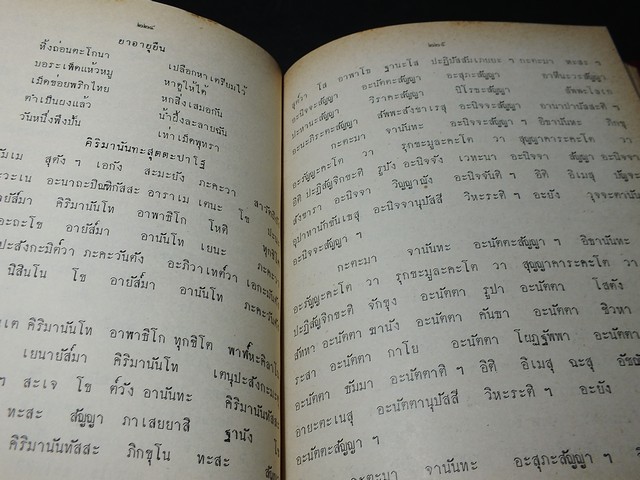 ๒๒๔
ยาอายุยืน
ทิ้งถ่อนตะโกนา เปลือกหาเตรียมไว้
บอระเพ็ดแห้วหมู หาดูให้ได้
เม็ดข่อยพริกไทย หกสิ่งเสมอกัน
ตำเป็นผงแล้ว น้ำผึ้งละลายฉัน
วันหนึ่งพึงปั้น เท่าเม็ดพุทรา
คิริมานันทะสุตตะปาโฐ
สุตัง ฯ เอกัง สะมะยัง ภะคะวา
อะนาถะปิณฑิกัสสะ อาราเม เตนะ โข
คิริมานันโท อาพาธิโก โหติ
อายัส์มา อานันโท เยนะ
ภะคะวันตัง อะภิวาเทต์วา เอกะมันตัง
นิสินโน โข อายัส์มา อานันโท ภะคะวันตัง
คิริมานันโท อาพาธิโก ทุกขิโต
เยนายัส์มา คิริมานันโท เตนุปะสังกะมะตุ
ฯ สะเจ โข ต์วัง อานันทะ
ทะสะ สัญญา ภาเสยยาสิ ฐานัง
คิริมานันทัสสะ ภิกขุโน ทะสะ
๒๒๕
สุต์วา โส อาพาโธ ฐานะโส ปะฏิปัสสัมเภยยะ ฯ กะตะมา ทะสะ ฯ
อะนิจจะสัญญา อะนัตตะสัญญา อะสุภะสัญญา อาทีนะวะสัญญา
ปะหานะสัญญา วิราคะสัญญา นิโรธะสัญญา สัพพะโลเก
อะนะภิระตะสัญญา สัพพะสังขาเรสุ อะนิจจะสัญญา อานาปานัสสะติ ฯ
กะตะมา จานันทะ อะนิจจะสัญญา ฯ อิธานันทะ ภิกขุ
อะรัญญะคะโต วา รุกขะมูละคะโต วา สุญญาคาระคะโต วา
อิติ ปะฏิสัญจิกขะติ รูปัง อะนิจจัง เวทะนา อะนิจจา สัญญา อะนิจจา
สังขารา อะนิจจา วิญญาณัง อะนิจจันติ ฯ อิติ อิเมสุ ปัญจะสุ
อุปาทานักขันเธสุ อะนิจจานุปัสสี วิหะระติ ฯ อะยัง วุจจะตานันทะ
อะนิจจะสัญญา ฯ
กะตะมา จานันทะ อะนัตตะสัญญา ฯ อิธานันทะ
อะรัญญะคะโต วา รุกขะมูละคะโต วา สุญญาคาระคะโต วา
ปะฏิสัญจิกขะติ จักขุง อะนัตตา รูปา อะนัตตา โสตัง
สัททา อะนัตตา ฆานัง อะนัตตา คันธา อะนัตตา ชิวหา
ระสา อะนัตตา กาโย อะนัตตา โผฏฐัพพา อะนัตตา
อะนัตตา ธัมมา อะนัตตาติ ฯ อิติ อิเมสุ ฉะสุ
อายะตะเนสุ อะนัตตานุปัสสี วิหะระติ ฯ อะยัง
อะนัตตะสัญญา ฯ
กะตะมา จานันทะ อะสุภะสัญญา ฯ